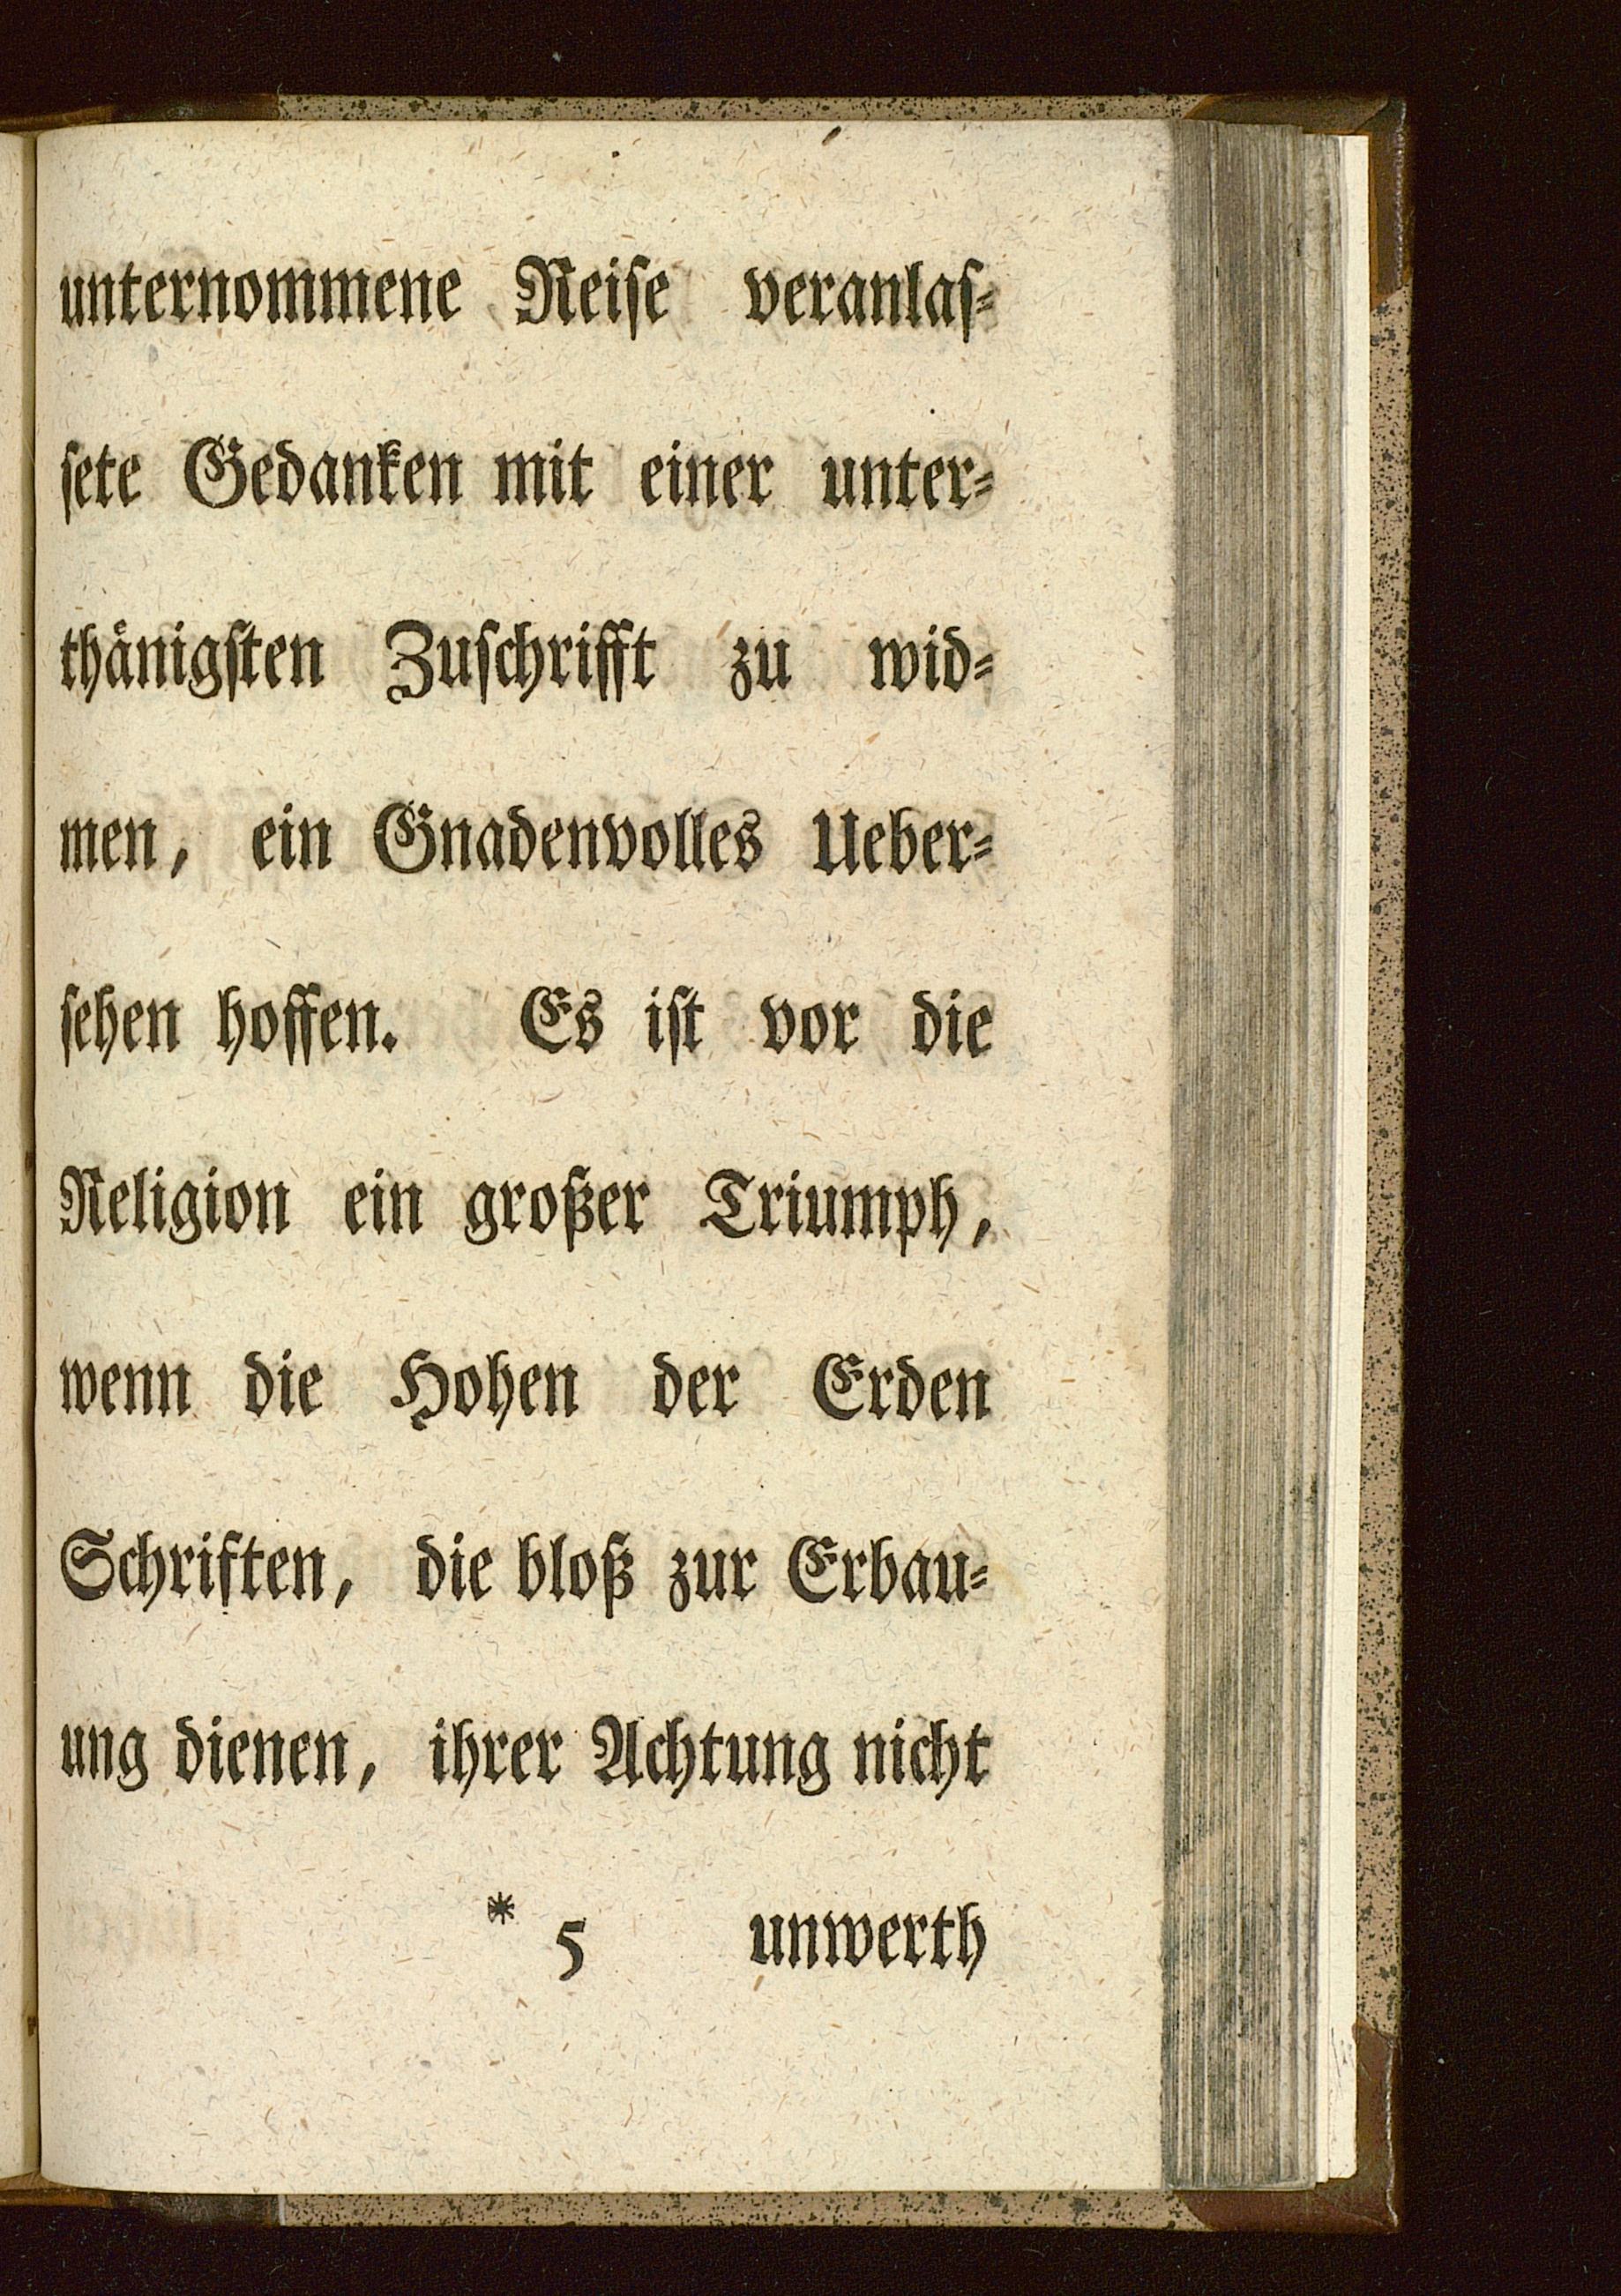 unternommene Reise veranlaſ⸗
ſete Gedanken mit einer unter⸗
thaͤnigſten Zuſchrifft zu wid⸗
men, ein Gnadenvolles Ueber⸗
ſehen hoffen. Es iſt vor die
Religion ein großer Triumph,
wenn die Hohen der Erden
Schriften, die bloß zur Erbau⸗
ung dienen, ihrer Achtung nicht
* 5 unwerth